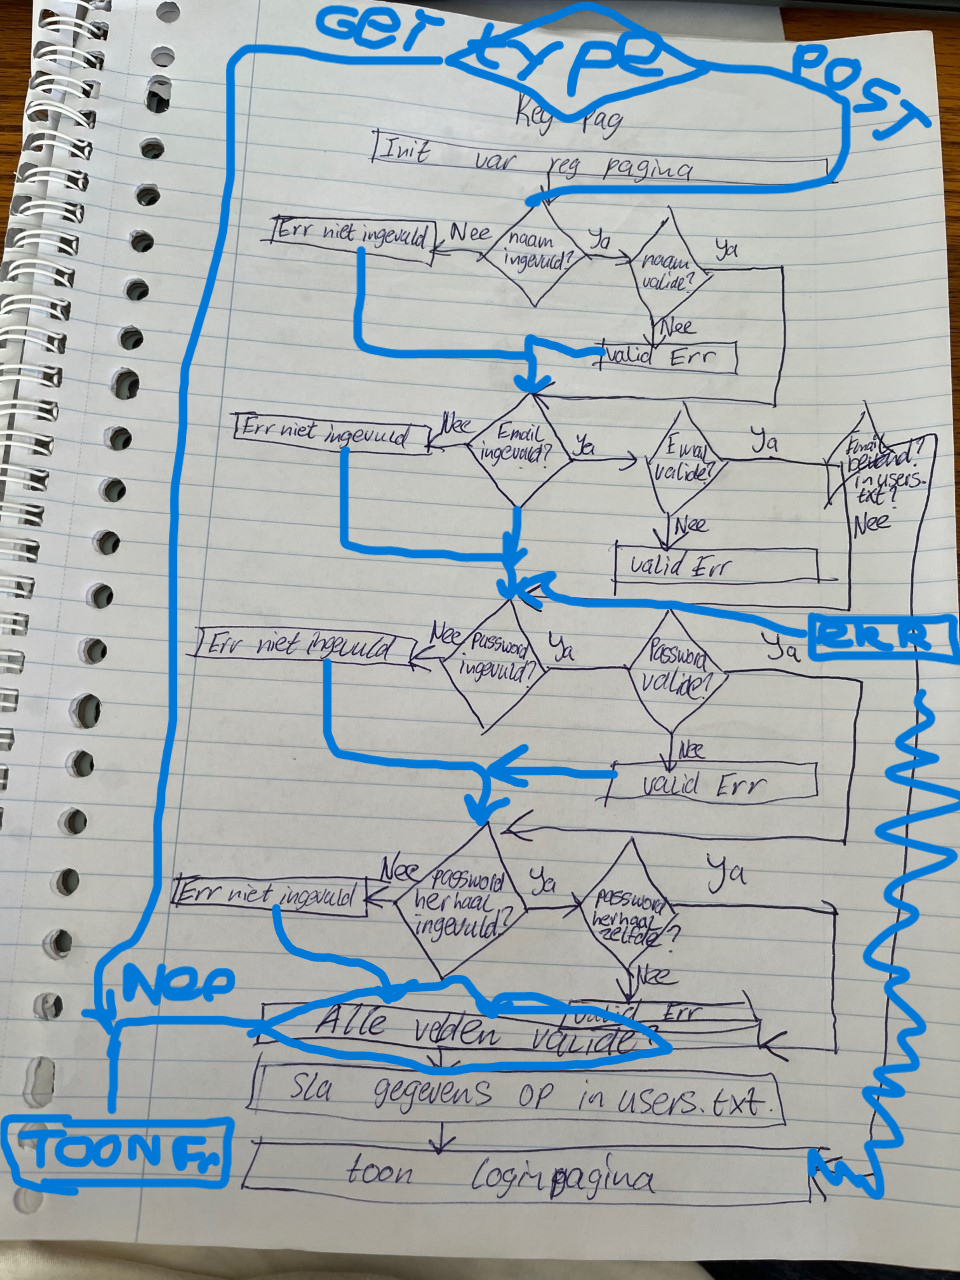 GET
type
POST
Reg pag
Init var reg pagina
Err niet ingevuld
Nee
naam
ingevuld?
Ya
naam
valide?
Ya
Nee
valid Err
Err niet ingevuld
Nee
Email
ingevuld?
Ya
Email
valide?
Ya
Email
bekend?
in users.
txt?
Nee
Nee
valid Err
ERR
Err niet ingevuld
Nee
Password
ingevuld?
Ya
Password
valide?
Ya
Nee
valid Err
Err niet ingevuld
Nee
password
herhaal
ingevuld?
Ya
password
herhaal
zelfde?
Ya
Nee
valid Err
Nee
Alle velden valide?
Sla gegevens op in users.txt.
TOON Fr
toon loginpagina